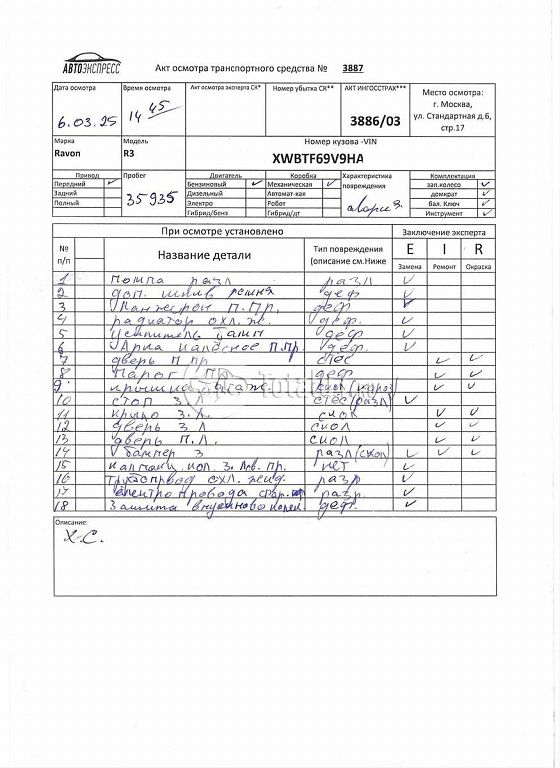 АВТОЭКСПРЕСС
Акт осмотра транспортного средства № 3887
Дата осмотра
6.03.25
Время осмотра
14 45
Акт осмотра эксперта СК*
Номер убытка СК**
АКТ ИНГОССТРАХ***
3886/03
Место осмотра:
г. Москва,
ул. Стандартная д.6,
стр.17
Марка
Ravon
Модель
R3
Номер кузова -VIN
XWBTF69V9HA
Привод
Передний ✓
Задний
Полный
Пробег
35935
Двигатель
Бензиновый ✓
Дизельный
Электро
Гибрид/бенз
Коробка
Механическая ✓
Автомат-кая
Робот
Гибрид/дт
Характеристика
повреждения
Комплектация
зап.колесо ✓
домкрат
бал. Ключ ✓
Инструмент ✓
При осмотре установлено
Заключение эксперта
№ п/п
Название детали
Тип повреждения
(описание см.Ниже
E Замена
I Ремонт
R Окраска
1 помпа разл разл ✓
2 доп. шкив ремня деф ✓
3 Лонжерон п.пр. деф ✓
4 радиатор охл. ж. деф. ✓
5 Усилитель деф. ✓
6 Арка п.пр. деф. ✓
7 дверь п пр ✓ ✓
8 Порог П деф ✓ ✓
9 крышка багаж. скол ✓ ✓
10 стоп з л ✓
11 крыло з.л. скол ✓ ✓
12 дверь з л скол ✓ ✓
13 дверь п.л. скол ✓ ✓
14 бампер з разл(скол) ✓ ✓ ✓
15 кол. з. пр. нет ✓
16 Трубопровод охл. жид. разл ✓
17 электропроводка разр. ✓
18 Защита деф. ✓
Описание:
Х.С.